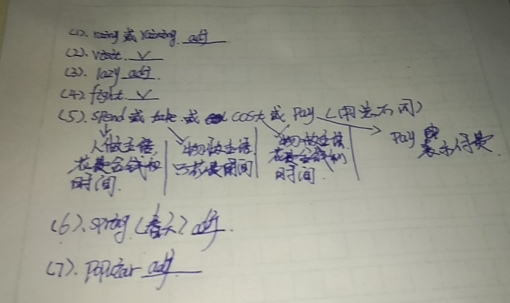 (1). rainy 或 raining. adj
(2). visit. v
(3). lazy adj
(4). fight. v
(5). spend 或 take 或 cost 或 pay (用法不同)
人做主语 花费金钱和时间.
物做主语 只花时间
物做主语 花费金钱和时间.
pay 表示付费
(6). spring (春天) adj.
(7). popstar adj